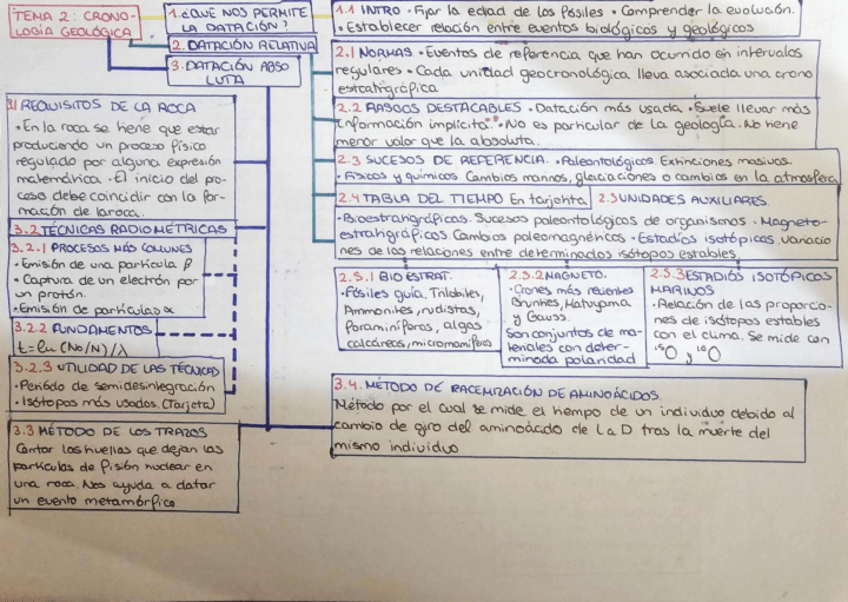 TEMA 2: CRONO-
LOGÍA GEOLÓGICA
1. ¿QUE NOS PERMITE
LA DATACIÓN?
2. DATACIÓN RELATIVA
3. DATACIÓN ABSO
LUTA
1.1 INTRO • Fijar la edad de los fósiles • Comprender la evolución.
• Establecer relación entre eventos biológicos y geológicos
2.1 NORMAS • Eventos de referencia que han ocurrido en intervalos
regulares • Cada unidad geocronológica lleva asociada una crono
estratigráfica
2.2 RASGOS DESTACABLES • Datación más usada • Suele llevar más
información implícita • No es particular de la geología. No tiene
menor valor que la absoluta.
2.3 SUCESOS DE REFERENCIA. • Paleontológicos. Extinciones masivas.
• Físicos y químicos Cambios marinos, glaciaciones o cambios en la atmósfera
2.4 TABLA DEL TIEMPO En tarjehta
2.5 UNIDADES AUXILIARES.
• Bioestratigráficas. Sucesos paleontológicos de organismos • Magneto-
estratigráficas. Cambios paleomagnéticos • Estadios isotópicos. Variacio
nes de las relaciones entre determinados isótopos estables.
2.5.1 BIOESTRAT.
• Fósiles guía. Trilobites,
Ammonites, rudistas,
Foraminíferos, algas
calcáreas, micromamíferos
2.5.2 MAGNETO.
• Crones más recientes
Brunhes, Matuyama
y Gauss.
Son conjuntos de ma-
teriales con deter-
minada polaridad
2.5.3 ESTADIOS ISOTÓPICOS
MARINOS
• Relación de las proporcio-
nes de isótopos estables
con el clima. Se mide con
O y O
3.1 REQUISITOS DE LA ROCA
• En la roca se tiene que estar
produciendo un proceso físico
regulado por alguna expresión
matemática • El inicio del pro-
ceso debe coincidir con la for-
mación de la roca.
3.2 TÉCNICAS RADIOMÉTRICAS
3.2.1 PROCESOS MÁS COMUNES
• Emisión de una partícula β
• Captura de un electrón por
un protón.
• Emisión de partículas α
3.2.2 FUNDAMENTOS
t = ln (No/N)/λ
3.2.3 UTILIDAD DE LAS TÉCNICAS
• Periodo de semidesintegración
• Isótopos más usados. (Tarjeta)
3.3 MÉTODO DE LOS TRAZOS
Contar las huellas que dejan las
partículas de fisión nuclear en
una roca. Nos ayuda a datar
un evento metamórfico
3.4. MÉTODO DE RACEMIZACIÓN DE AMINOÁCIDOS.
Método por el cual se mide el tiempo de un individuo debido al
cambio de giro del aminoácido de L a D tras la muerte del
mismo individuo